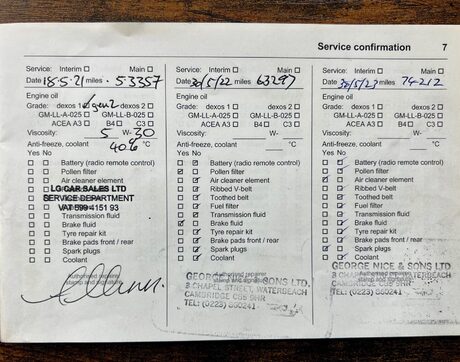 Service confirmation 7
Service: Interim Main
Date 18-5-21 miles 53357
Engine oil
Grade: dexos 1 dexos 2
gen2
GM-LL-A-025 GM-LL-B-025
ACEA A3 B4 C3
Viscosity: 5 W-30
Anti-freeze, coolant °C
Yes No
Battery (radio remote control)
Pollen filter
Air cleaner element
LG CAR SALES LTD
SERVICE DEPARTMENT
VAT 599 4151 93
Transmission fluid
Brake fluid
Tyre repair kit
Brake pads front / rear
Spark plugs
Coolant
Authorised repairer
stamp and signature
Service: Interim Main
Date 30/5/22 miles 63297
Engine oil
Grade: dexos 1 dexos 2
GM-LL-A-025 GM-LL-B-025
ACEA A3 B4 C3
Viscosity: W-
Anti-freeze, coolant °C
Yes No
Battery (radio remote control)
Pollen filter
Air cleaner element
Ribbed V-belt
Toothed belt
Fuel filter
Transmission fluid
Brake fluid
Tyre repair kit
Brake pads front / rear
Spark plugs
Coolant
Authorised repairer
stamp and signature
GEORGE SONS LTD.
3 CHAPEL STREET, WATERBEACH
CAMBRIDGE CB5 9HR
TEL: (0223) 860241
Service: Interim Main
Date 30/5/23 miles 74212
Engine oil
Grade: dexos 1 dexos 2
GM-LL-A-025 GM-LL-B-025
ACEA A3 B4 C3
Viscosity: W-
Anti-freeze, coolant °C
Yes No
Battery (radio remote control)
Pollen filter
Air cleaner element
Ribbed V-belt
Toothed belt
Fuel filter
Transmission fluid
Brake fluid
Tyre repair kit
Brake pads front / rear
Spark plugs
Coolant
Authorised repairer
stamp and signature
GEORGE NICE & SONS LTD.
3 CHAPEL STREET, WATERBEACH
CAMBRIDGE CB5 9HR
TEL: (0223) 860241